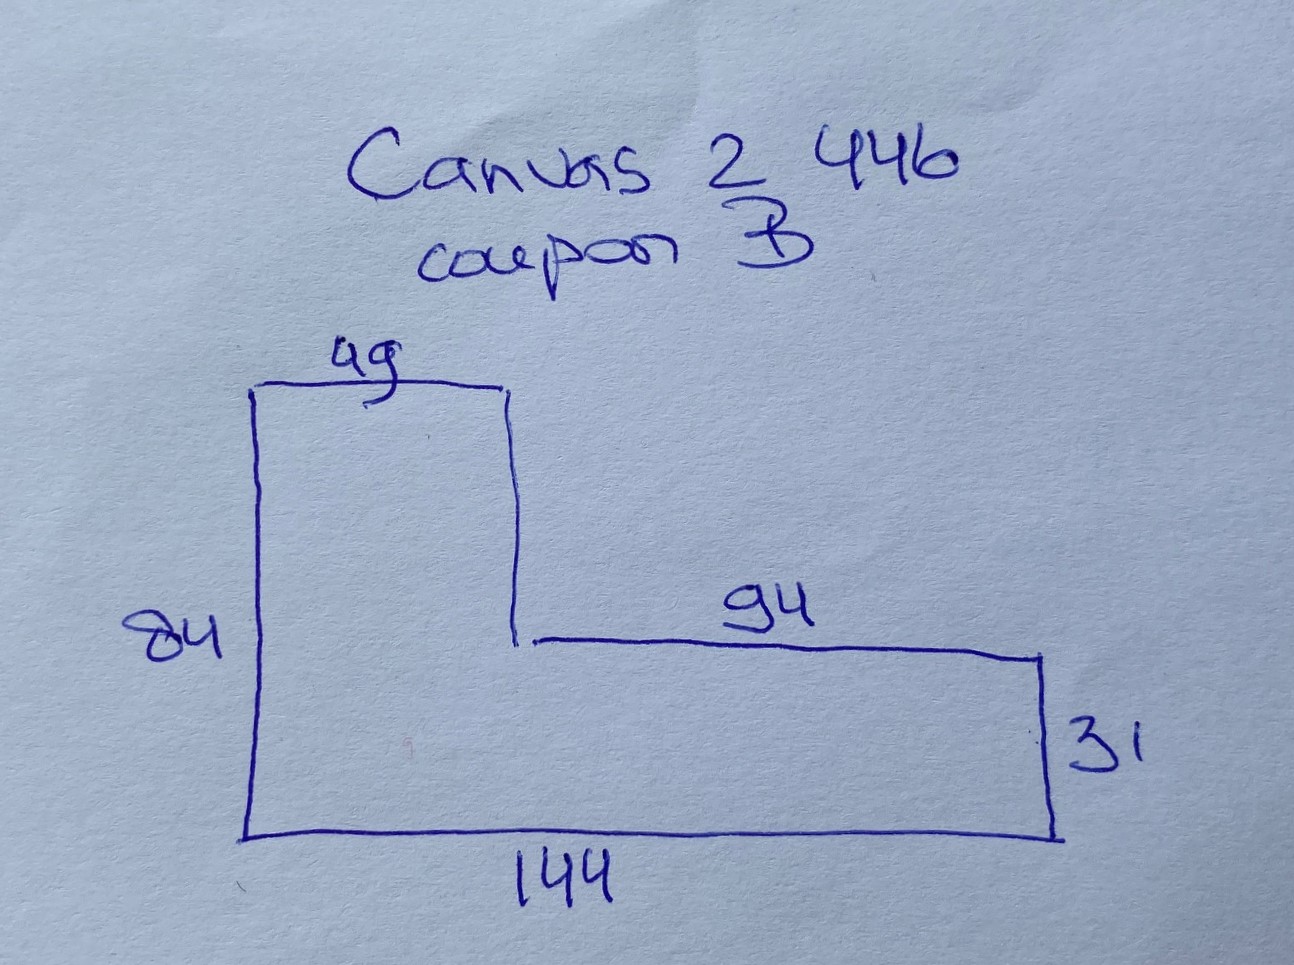 Canvas 2 446
coupon B
49
94
84
31
144